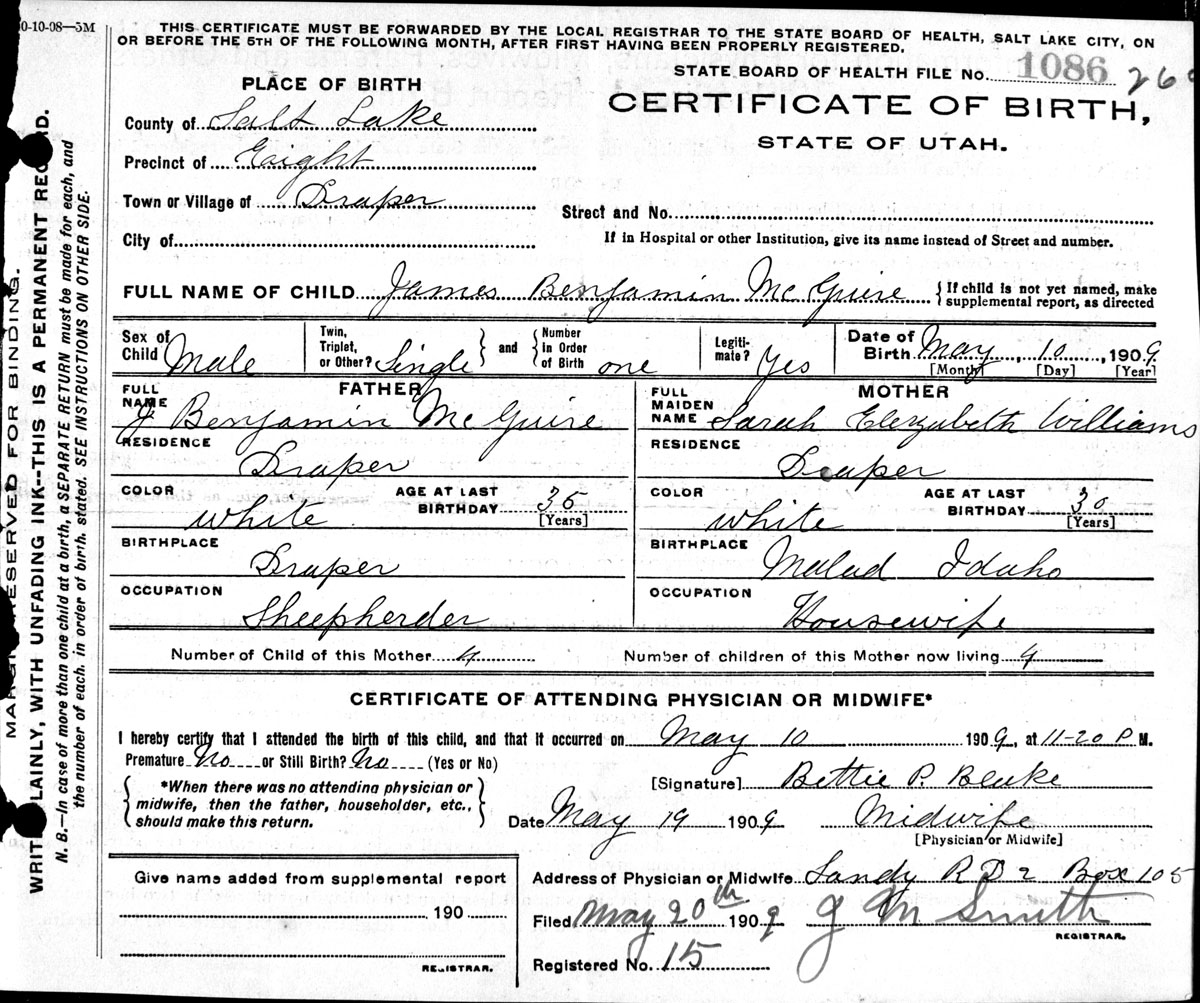 0-10-08—5M
THIS CERTIFICATE MUST BE FORWARDED BY THE LOCAL REGISTRAR TO THE STATE BOARD OF HEALTH, SALT LAKE CITY, ON
OR BEFORE THE 5TH OF THE FOLLOWING MONTH, AFTER FIRST HAVING BEEN PROPERLY REGISTERED.
STATE BOARD OF HEALTH FILE No. 1086 260
PLACE OF BIRTH
CERTIFICATE OF BIRTH,
STATE OF UTAH.
County of Salt Lake
Precinct of Eaight
Town or Village of Draper
Street and No.
City of
If in Hospital or other Institution, give its name instead of Street and number.
FULL NAME OF CHILD James Benjamin McGuire { If child is not yet named, make
supplemental report, as directed
Sex of Child Male
Twin, Triplet, or Other? Single } and { Number in Order of Birth one
Legitimate? Yes
Date of Birth May, 10, 1909
[Month] [Day] [Year]
FATHER
FULL NAME J Benjamin McGuire
MOTHER
FULL MAIDEN NAME Sarah Elezabeth Williams
RESIDENCE Draper
RESIDENCE Draper
COLOR white AGE AT LAST BIRTHDAY 35 [Years]
COLOR white AGE AT LAST BIRTHDAY 30 [Years]
BIRTHPLACE Draper
BIRTHPLACE Malad Idaho
OCCUPATION Sheepherder
OCCUPATION Housewife
Number of Child of this Mother 4 Number of children of this Mother now living 4
CERTIFICATE OF ATTENDING PHYSICIAN OR MIDWIFE*
I hereby certify that I attended the birth of this child, and that it occurred on May 10 1909, at 11-20 P M.
Premature No or Still Birth? No (Yes or No)
{ *When there was no attending physician or
midwife, then the father, householder, etc.,
should make this return. }
[Signature] Bettie P. Blake
Date May 19 1909 Midwife
[Physician or Midwife]
Give name added from supplemental report
190
REGISTRAR.
Address of Physician or Midwife Sandy R D 2 Box 105
Filed May 20th 1909 J M Smith
REGISTRAR.
Registered No. 15
RESERVED FOR BINDING.
LAINLY, WITH UNFADING INK--THIS IS A PERMANENT RECORD.
N. B.—In case of more than one child at a birth, a SEPARATE RETURN must be made for each, and
the number of each, in order of birth, stated. SEE INSTRUCTIONS ON OTHER SIDE.